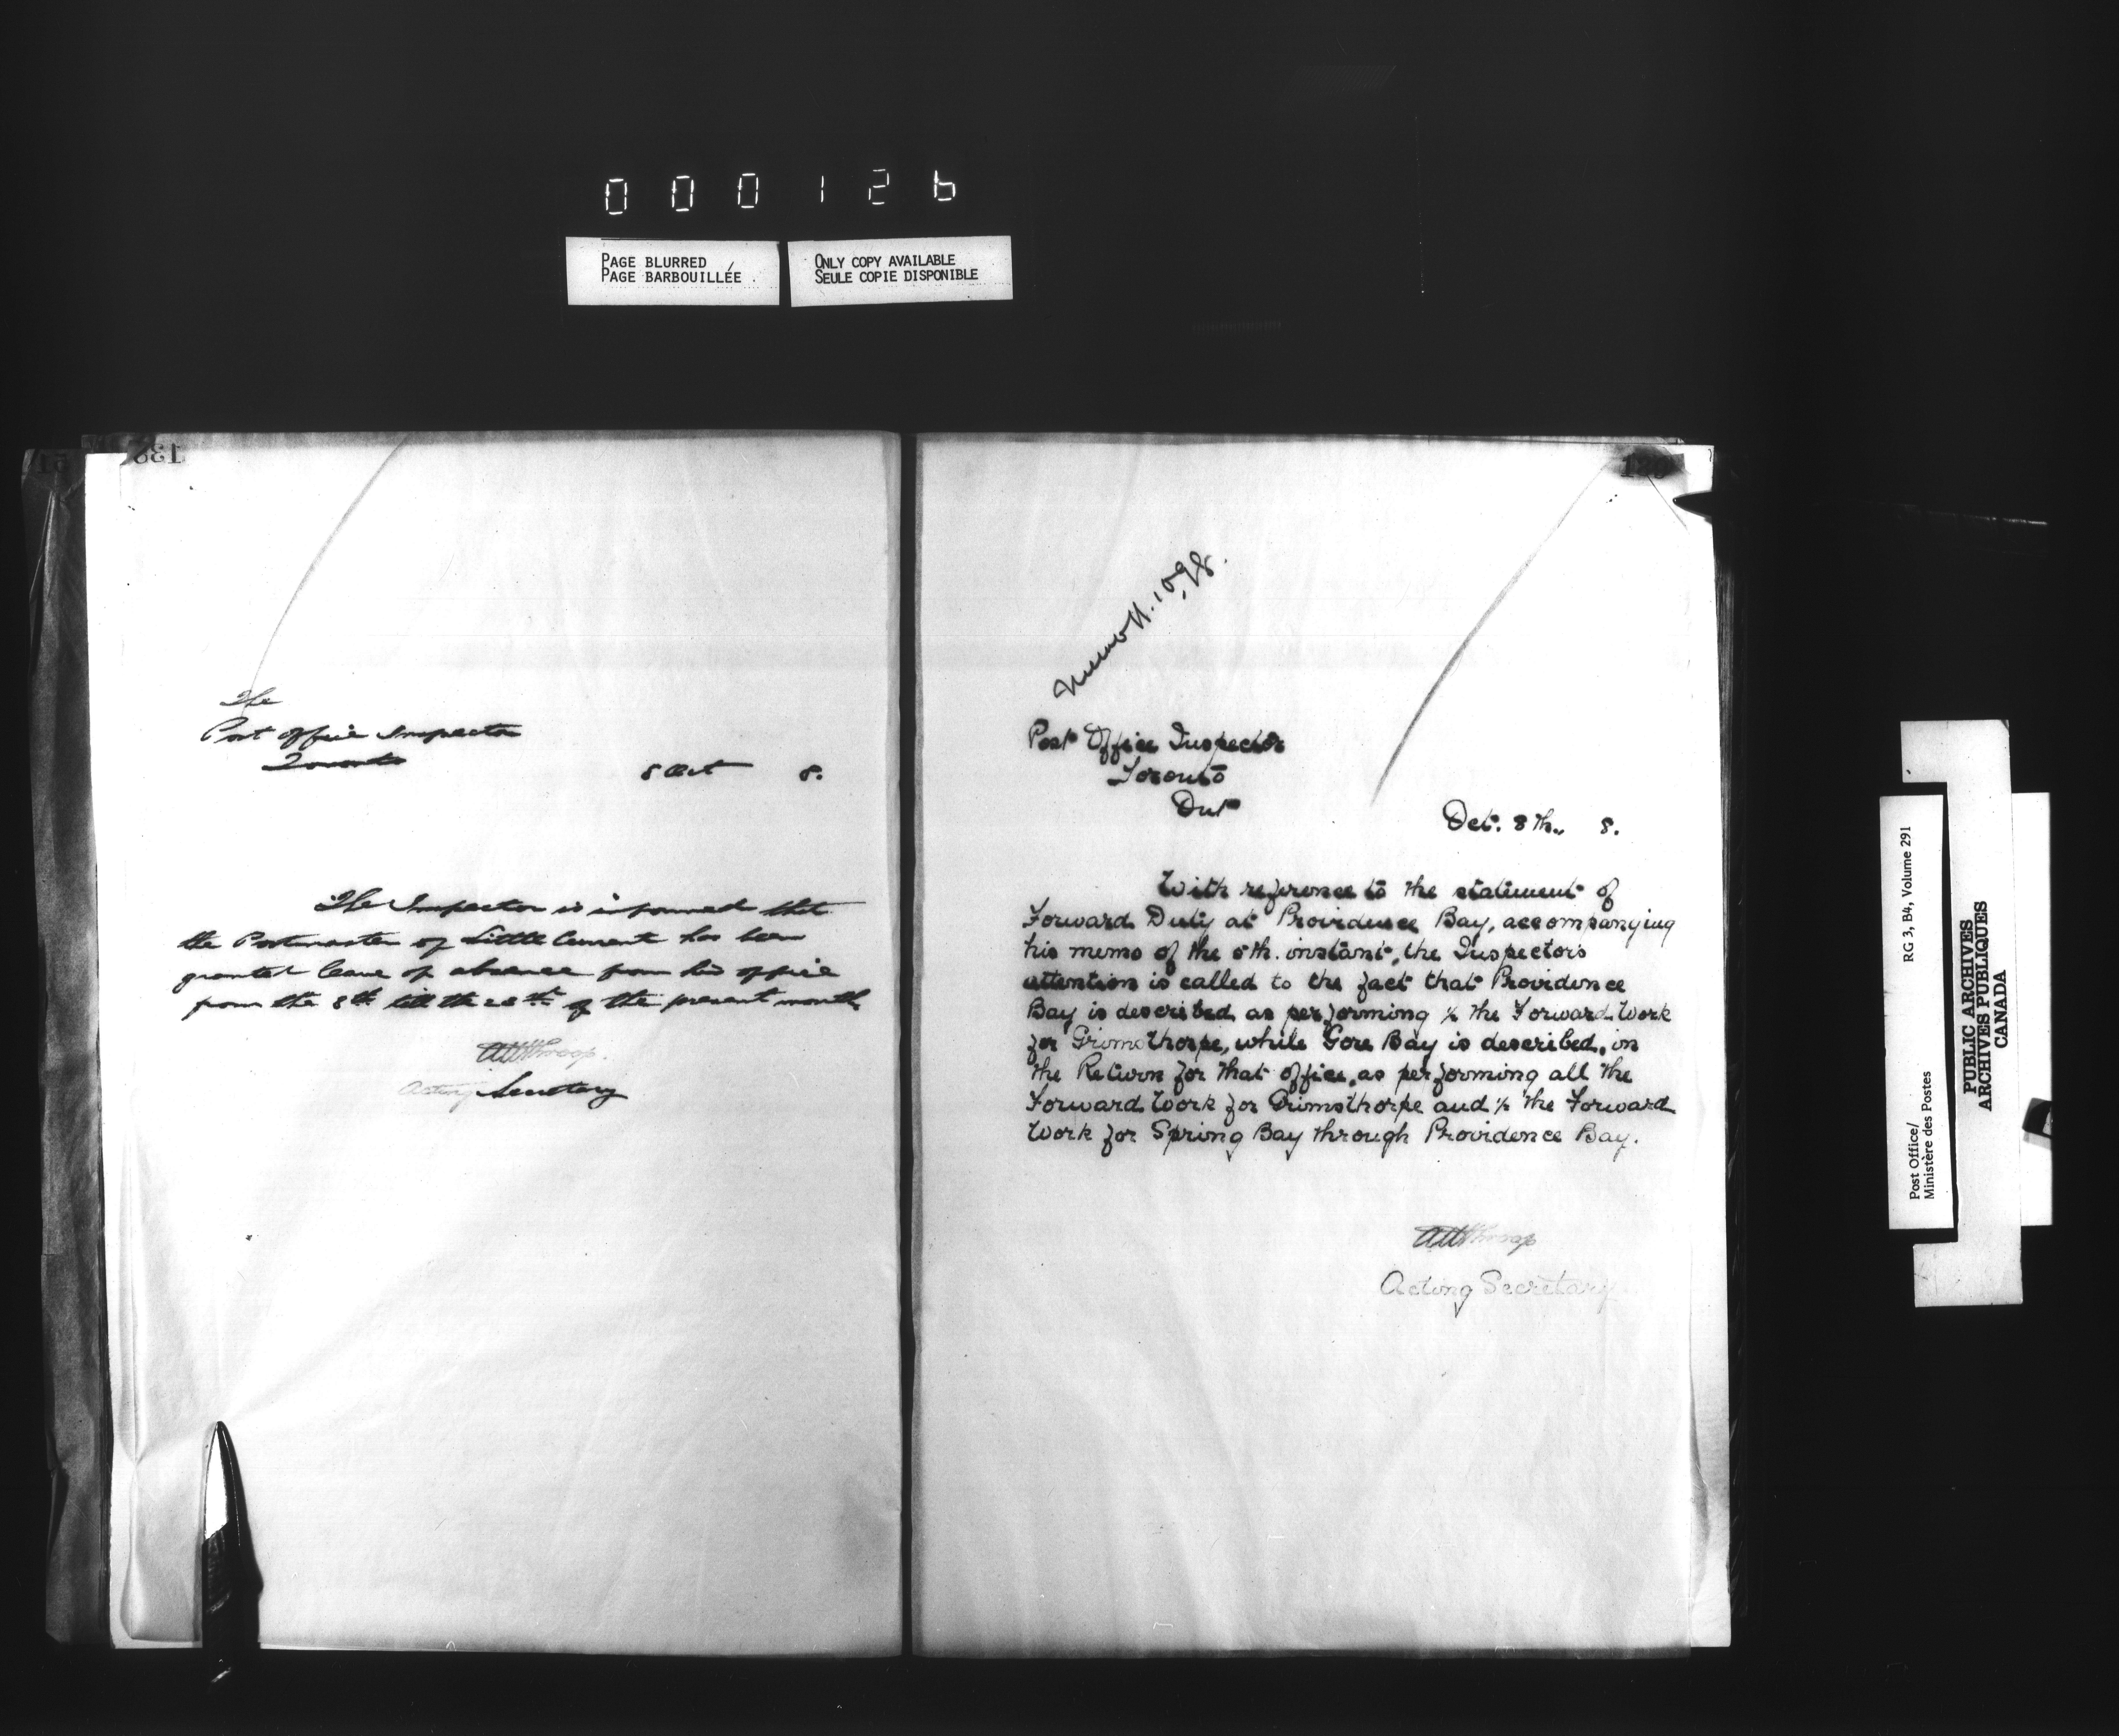 000126
PAGE BLURRED
PAGE BARBOUILLÉE
ONLY COPY AVAILABLE
SEULE COPIE DISPONIBLE
138
The
Post Office Inspector
Toronto
8 Oct 8.
The Inspector is informed that
the Postmaster of Little Current has been
granted leave of absence from his office
from the 8th till the 20th of the present month
Acting Secretary
Memo H. 1098.
Post Office Inspector
Toronto
Ont
Oct. 8th. 8.
With reference to the statement of
Forward Duty at Providence Bay, accompanying
his memo of the 5th. instant, the Inspector's
attention is called to the fact that Providence
Bay is described as performing ½ the Forward Work
for Grimsthorpe, while Gore Bay is described, in
the Return for that office, as performing all the
Forward Work for Grimsthorpe and ½ the Forward
Work for Spring Bay through Providence Bay.
Acting Secretary
Post Office/
Ministère des Postes
RG 3, B4, Volume 291
PUBLIC ARCHIVES
ARCHIVES PUBLIQUES
CANADA